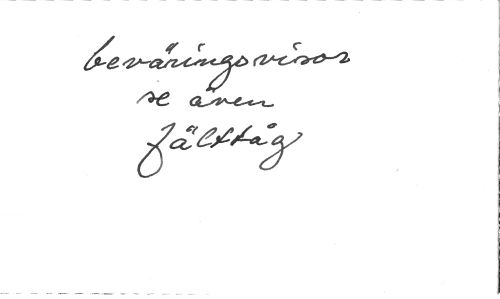 beväringsvisor
se även
fälttåg